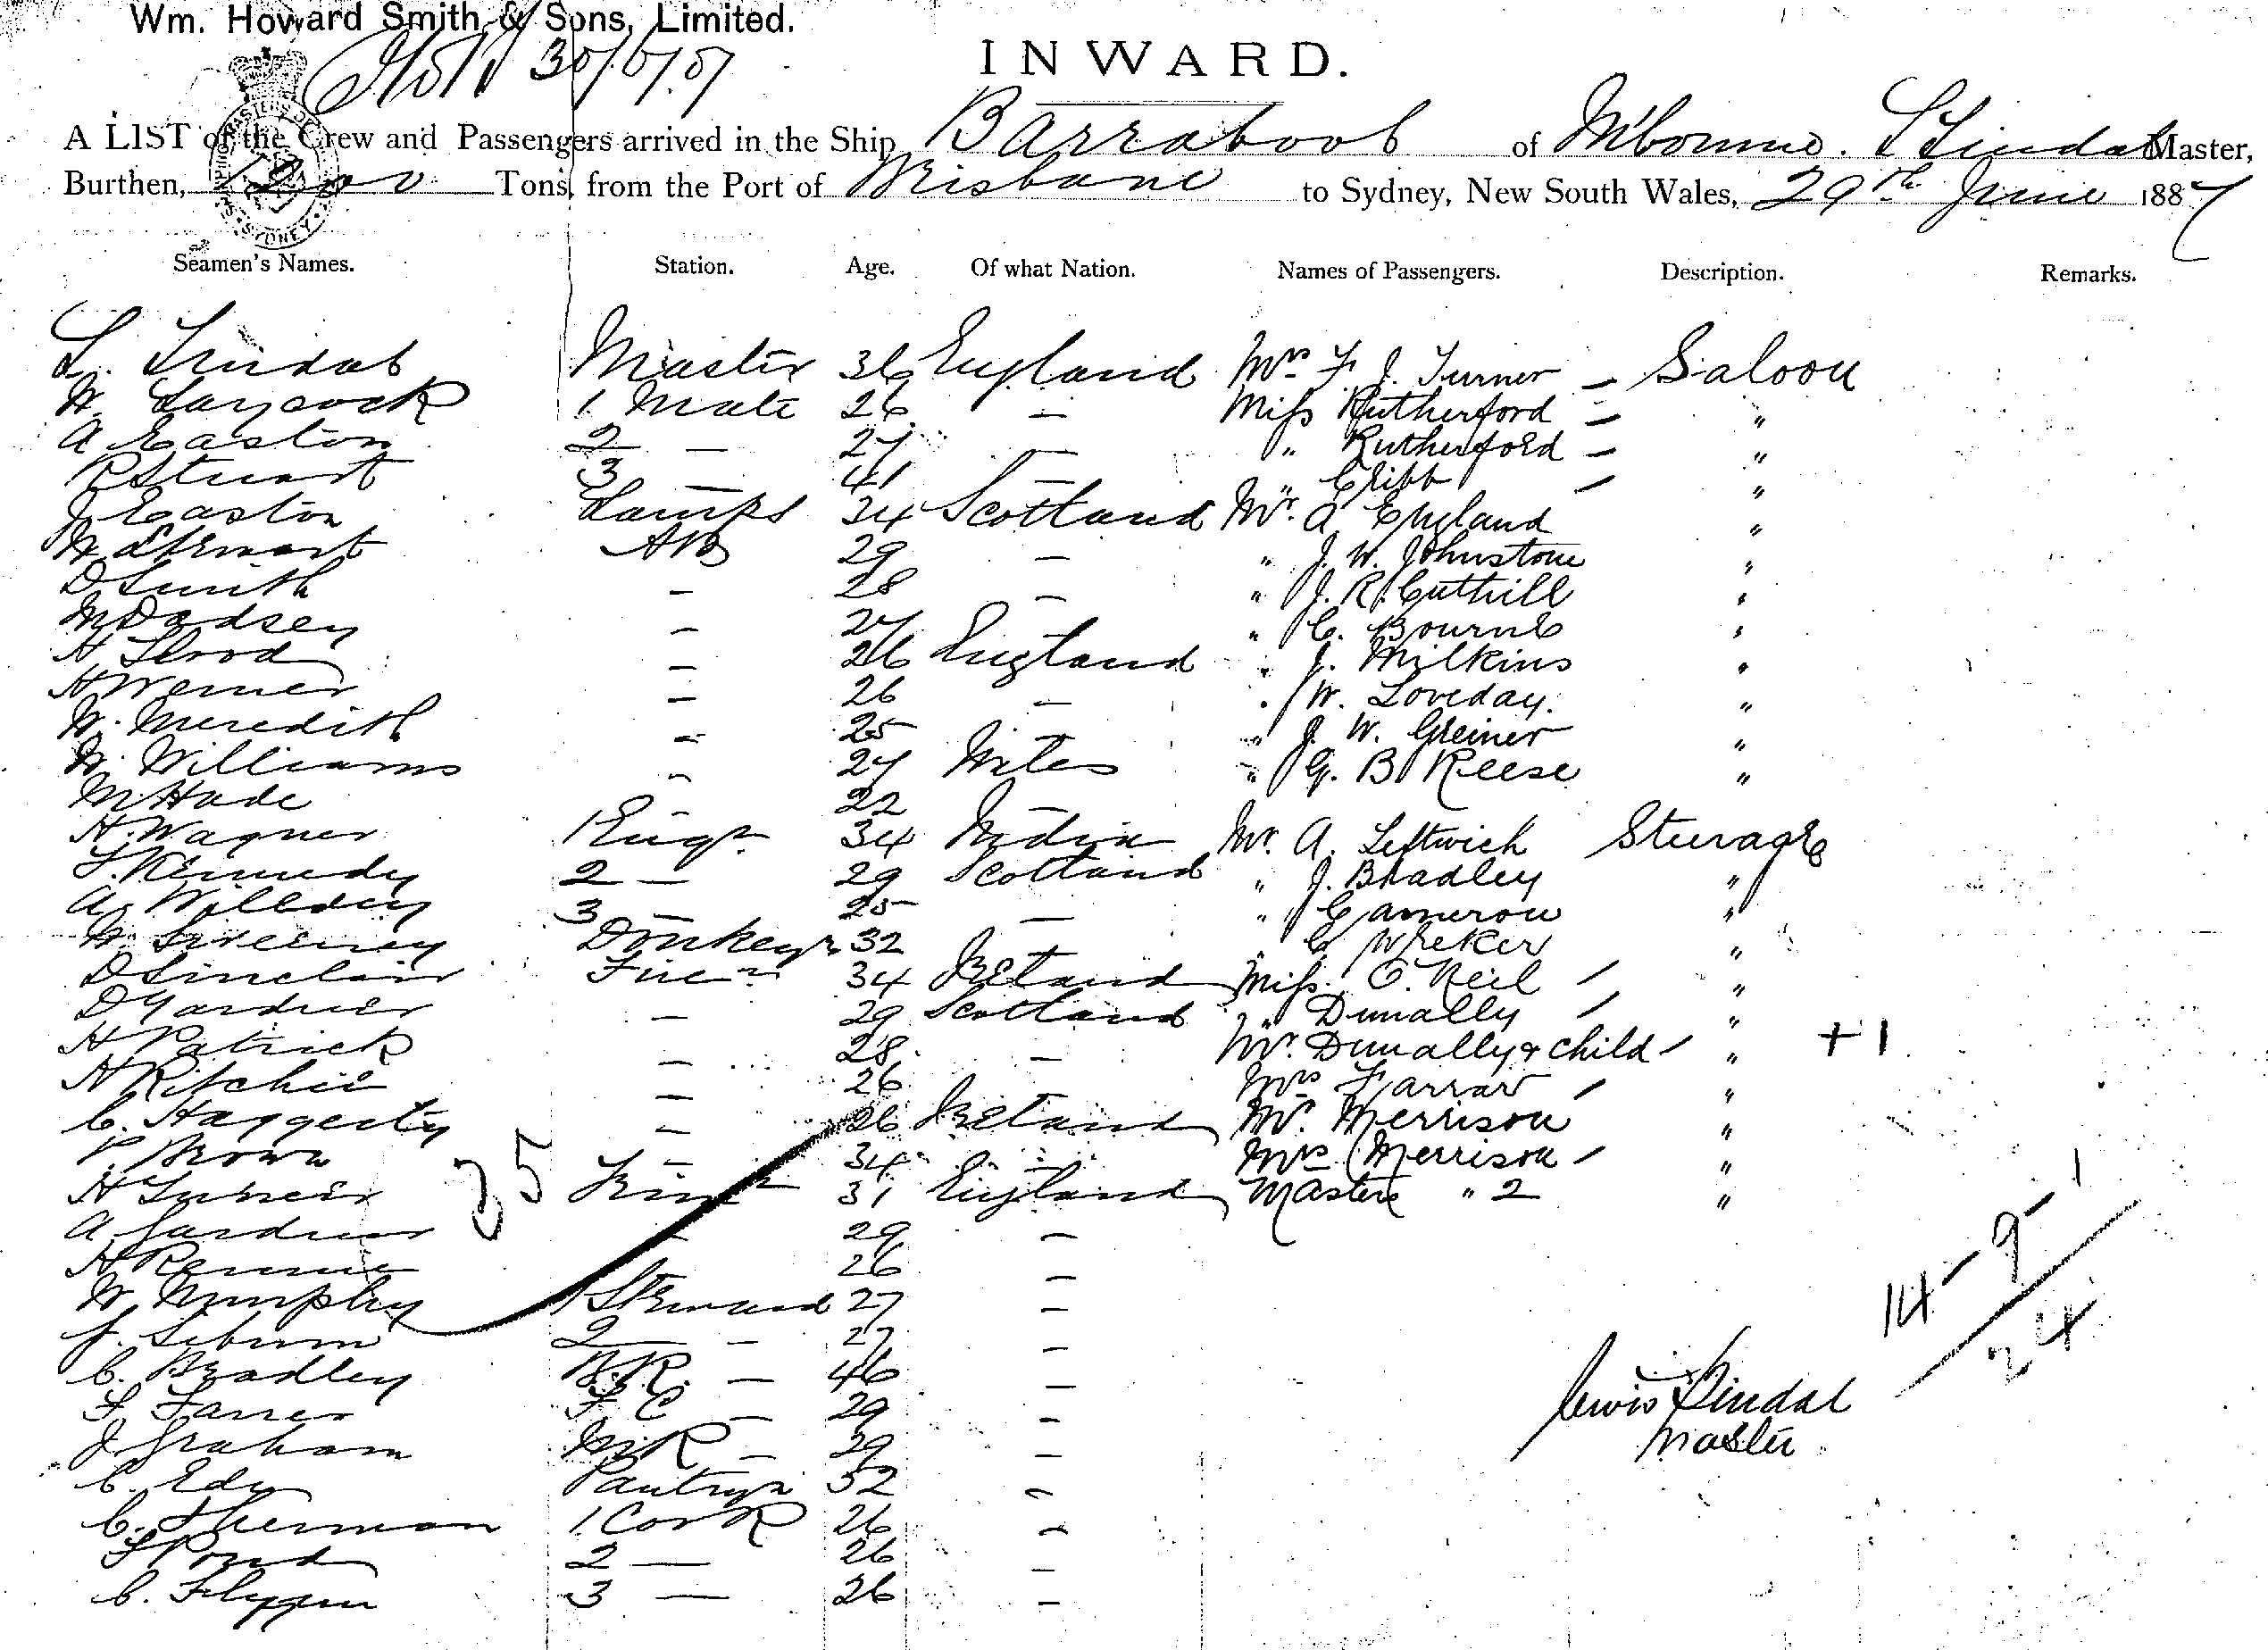 Wm. Howard Smith & Sons, Limited.
INWARD.
A LIST of the Crew and Passengers arrived in the Ship Barrabool of M'bourne. L Lindal Master,
Burthen, Tons, from the Port of Brisbane to Sydney, New South Wales, 29th June 1887
Seamen's Names. Station. Age. Of what Nation. Names of Passengers. Description. Remarks.
L. Lindal Master 36 England Mrs F. J. Turner – Saloon
W. Laycock 1 Mate 26 – Miss Rutherford – "
A Easton 2 – 27 – " Rutherford – "
R Stuart 3 – 41 – " Cribb / "
J Easton Lamps 34 Scotland Mr. A England "
W Stewart AB 29 – " J. W. Johnstone "
D Smith – 28 – " J. R. Cuthill "
M Dadsey – 27 " C. Bourne "
H Flood – 26 England " J. Wilkins "
H Werner – 26 – " W. Loveday. "
W. Meredith – 25 – " J. W. Greiner "
W. Williams – 27 Wales " G. B. Reese "
M Hade – 22 –
H. Wagner 1 Engr 34 India Mr. A. Leftwich Steerage
Kennedy 2 – 29 Scotland " J. Bradley "
A. 3 – 25 – " Cameron "
Sweeney Donkeyn 32 " C. "
D Sinclair Firen 34 Ireland Miss O. Neil / "
D Gardner – 29 Scotland " Dunally / "
H Patrick – 28 – Mr. Dunally & child / " +1
H Ritchie – 26 – Mrs Farrar / "
C. Haggerty – 26 Ireland Mr. Merrison "
P Brown – 34 – Mrs Merrison / "
H Trimr 31 England Masters " 2 "
35
A Gardner – 29 –
H Rennie 26 –
W. Murphy 1 Steward 27 –
J. 2 – – 27 –
C. Bradley B.R. – 46 –
F Farrer F C – 29 –
J Graham M R – 29 –
C. Edy Pantryn 32 –
C. Sherman 1 Cook 26 –
Pond 2 – 26 –
C. 3 – 26 –
14 – 9 – 1
24
Lewis Lindal
Master